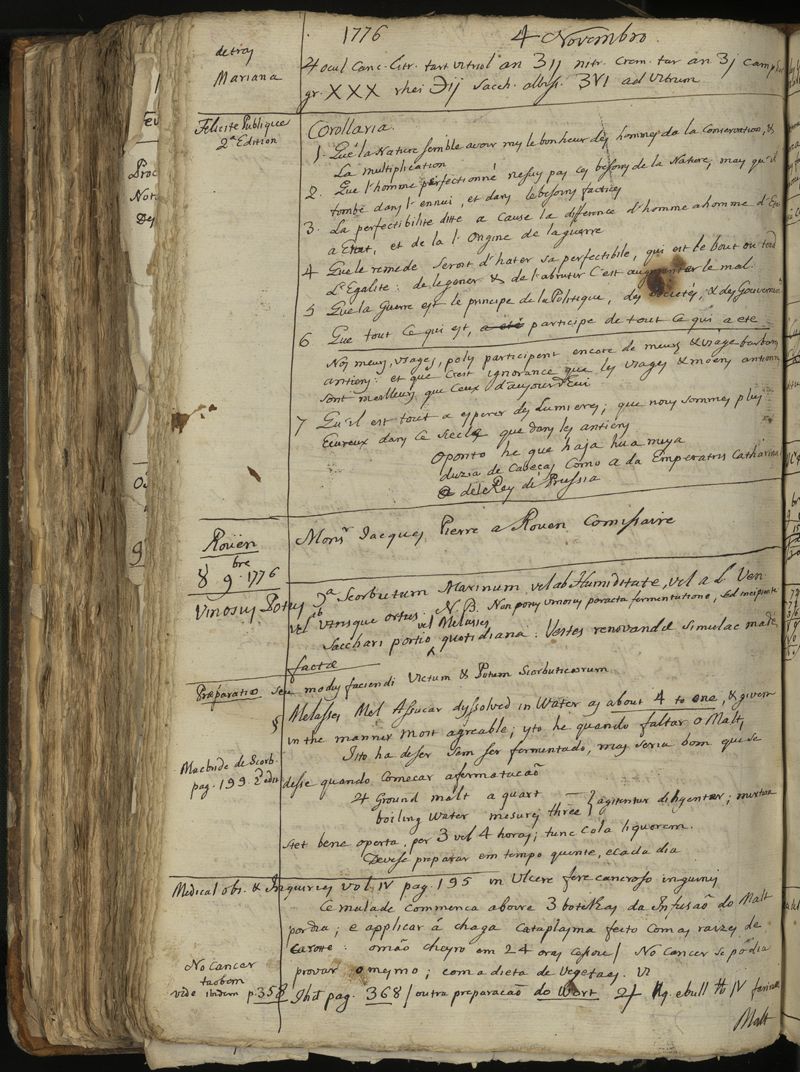 1776 4 Novembro
de tras
Mariana
♃ ocul Canc. Citr. tart vitriol an ʒij nitr. Crem. tar an ʒj camph
gr. XXX rhei ℈ij Sacch. albiss. ʒVI ad Vitrum
Felicite Publique
2ª Edition
Corollaria.
1. Que la Nature semble avoir mis le bonheur des hommes da la Conservation, &
La multiplication
2. Que l'homme perfectionné nesuy pas les besoins de la Nature, mays qu'il
tombe dans l'ennui, et dans le besoins factices
3. La perfectibilite dite a Cause la difference d'homme a homme d'Etat
a Etat, et de la l'Origine de la guerre
4 Que le remede seroit d'hater sa perfectibile, qui est le bout ou tend
L'Egalite: de legener & de l'abrutir C'est augmenter le mal.
5 Que la Guerre est le principe de la Politique, des Societés, & des Gouverne
6 Que tout Ce qui est, a eté participe de tout Ce qui a ete
Nos meurs, usages, polis participent encore de meurs & usage barbares
antiens: et que C'est ignorance que les usages & moeurs antiens
sont meilleurs que Ceux d'aujourd'Eui
7 Qu'il est tout a esperer des Lumieres; que nous sommes plus
Eureux dans Ce Siecle que dans les antiens
Oponto he que haja hua meya
duzia de Cabeças Como a da Emperatris Catharina
e delRey de Prussia
Rouën
8 9.bre 1776
Monsr Jacques Pierre a Rouen Comissaire
Vinosus Potus ad Scorbutum Marinum vel ab Humiditate, vel a L. Ven
vel ab Utrisque ortus. N.B. Non potus vinosus peracta fermentatione, Sed incipiente
Sacchari portio vel Melasses quotidiana. Vestes renovandæ simulac made
factæ
Præparatio seu modus faciendi Victum & Potum Scorbuticorum
Melasses Mel Assucar dyssolved in Water as about 4 to one, & given
in the manner most agreable; ysto he quando faltar o Malt,
Isto ha de ser sem ser fermentado, mas seria bom que se
desse quando Comecar afermatacaõ
Macbride de Scorb.
pag. 199. 2ª edit
♃ Ground malt a quart
boiling Water mesures three } agitentur diligenter; mixtura
stet bene operta, per 3 vel 4 horas; tunc Cola liquorem.
Devese preparar em tempo quente, e cada dia
Medical obs. & Inquiries vol IV pag. 195 in Ulcere fere cancroso inguinis
Ce malade Commenca aboire 3 botelhas da Infusaõ do Malt
por dia; e applicar á chaga Cataplasma feito Com as raizes de
Carotte: o mão cheyro em 24 oras Cessou / No Cancer se podia
provar o mesmo; com a dieta de vegetaes. Vi
No Cancer
taobom
vede ibidem p. 358
Ibid pag. 368 / outra preparacaõ do Wort ♃ aq. ebull ℔ IV farinæ
Malt